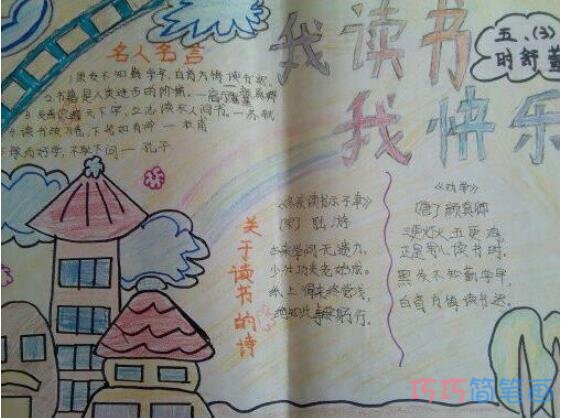 我读书
我快乐
五、(3)
时舒萱
名人名言
1.黑发不知勤学早,白首方悔读书迟。
2.书籍是人类进步的阶梯。——高尔基
4.读书破万卷,下笔如有神——杜甫
不耻下问——孔子
关于读书的诗
《冬夜读书示子聿》
(宋)陆游
古来学问无遗力,
少壮功夫老始成。
纸上得来终觉浅,
绝知此事要躬行。
《劝学》
(唐)颜真卿
三更灯火五更鸡,
正是男儿读书时。
黑发不知勤学早,
白首方悔读书迟。
巧巧简笔画